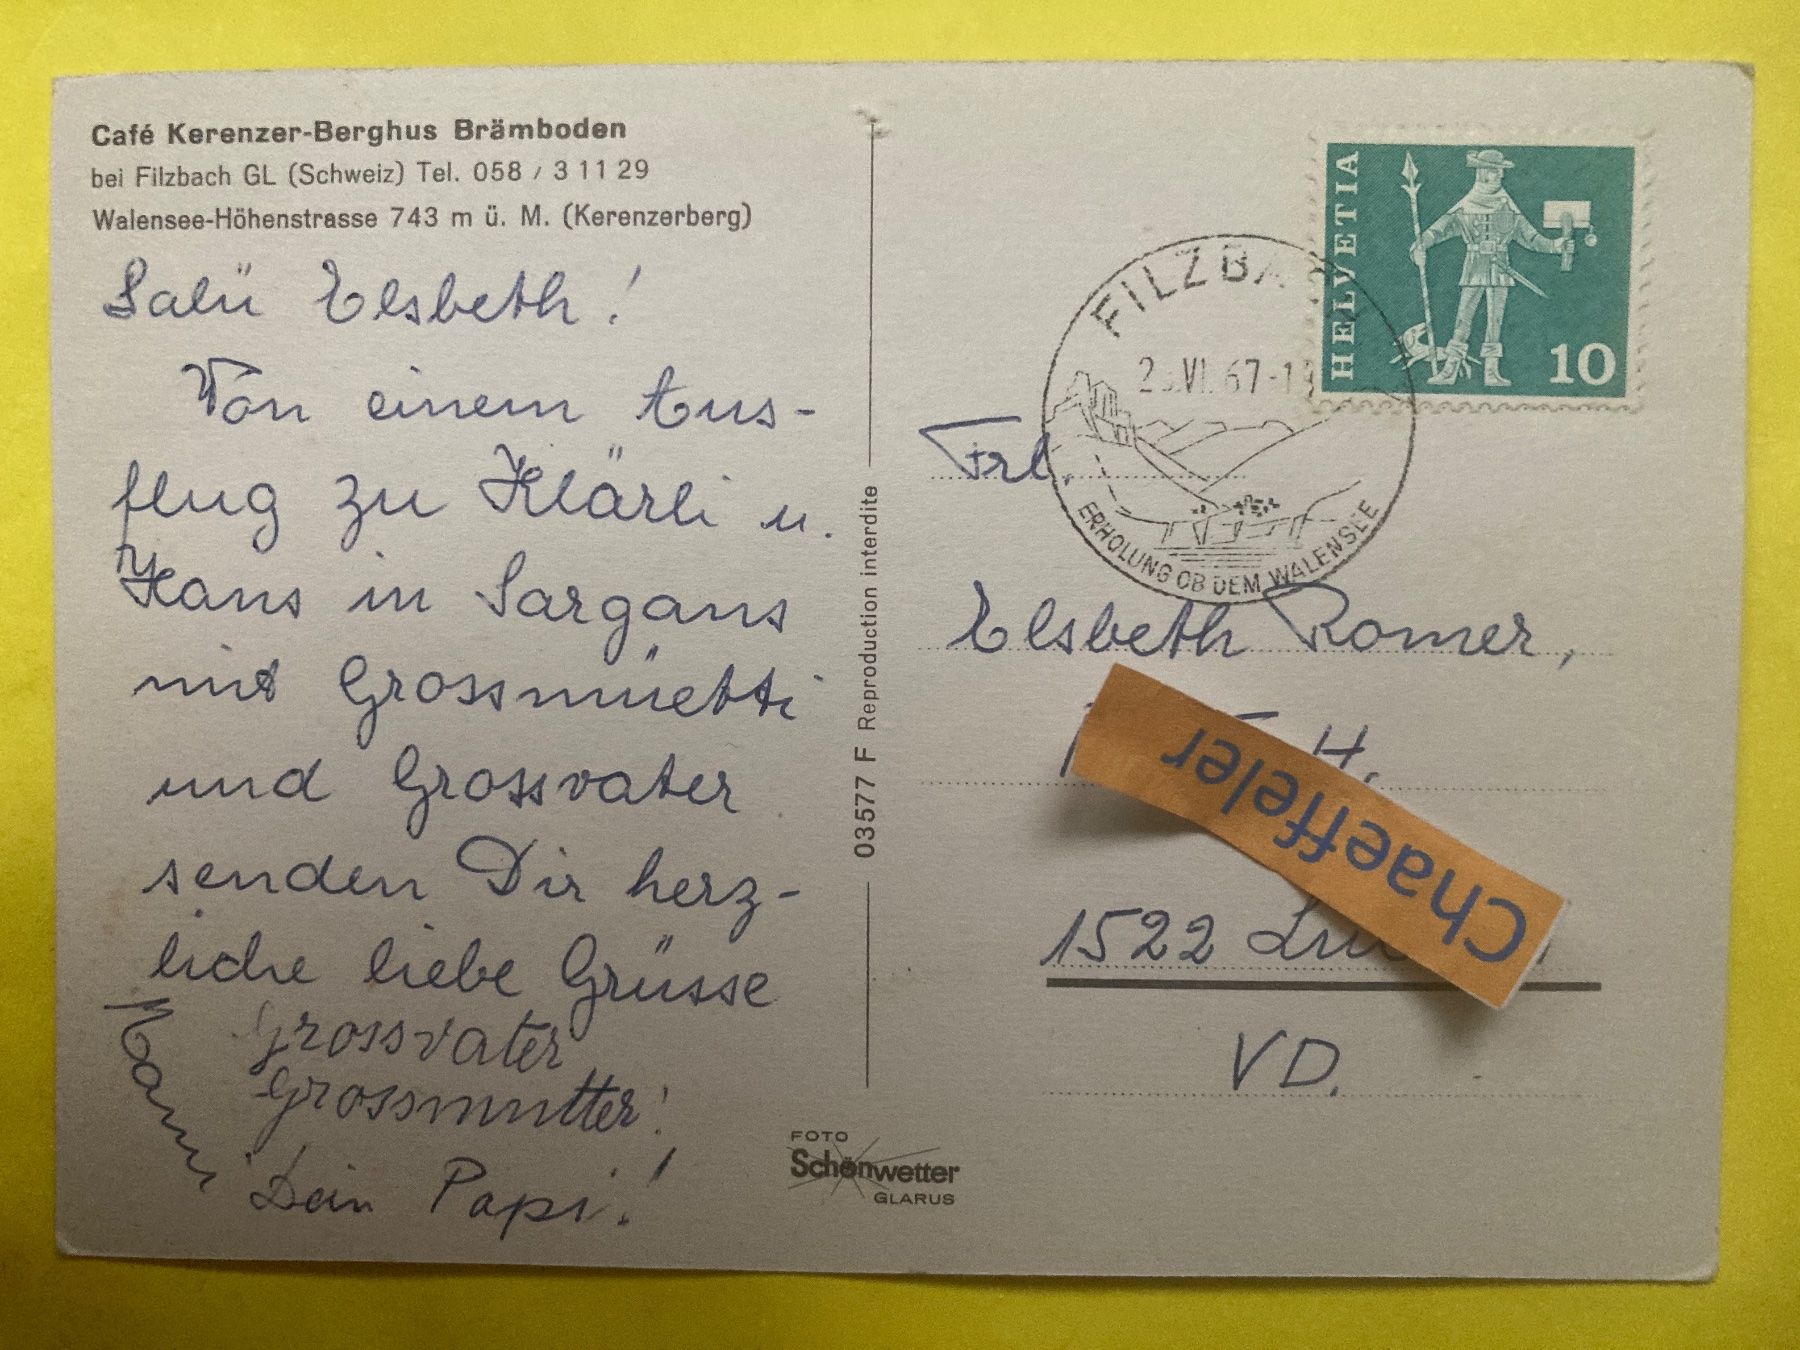 Café Kerenzer-Berghus Brämboden
bei Filzbach GL (Schweiz) Tel. 058 / 3 11 29
Walensee-Höhenstrasse 743 m ü. M. (Kerenzerberg)
Salü Elsbeth!
Von einem Aus-
flug zu Klärli u.
Hans in Sargans
mit Grossmüetti
und Grossvater
senden Dir herz-
liche liebe Grüsse
Grossvater
Grossmutter!
Mami
Dein Papi!
03577 F Reproduction interdite
FOTO
Schönwetter
GLARUS
HELVETIA
10
FILZBA
VI. 67
ERHOLUNG OB DEM WALENSEE
Frl.
Elsbeth Romer,
H.
Chaeffeler
1522
VD.